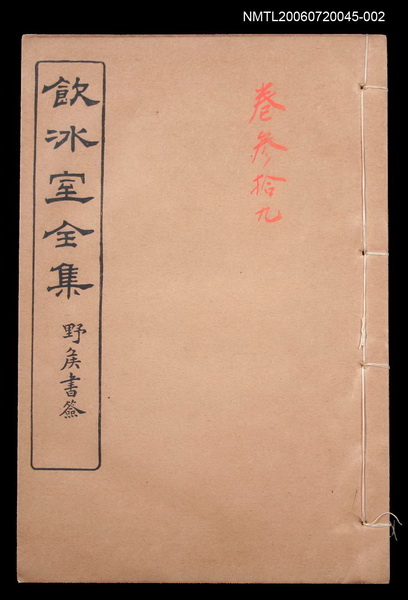 NMTL20060720045-002
卷参拾九
飲冰室全集
野矦書簽